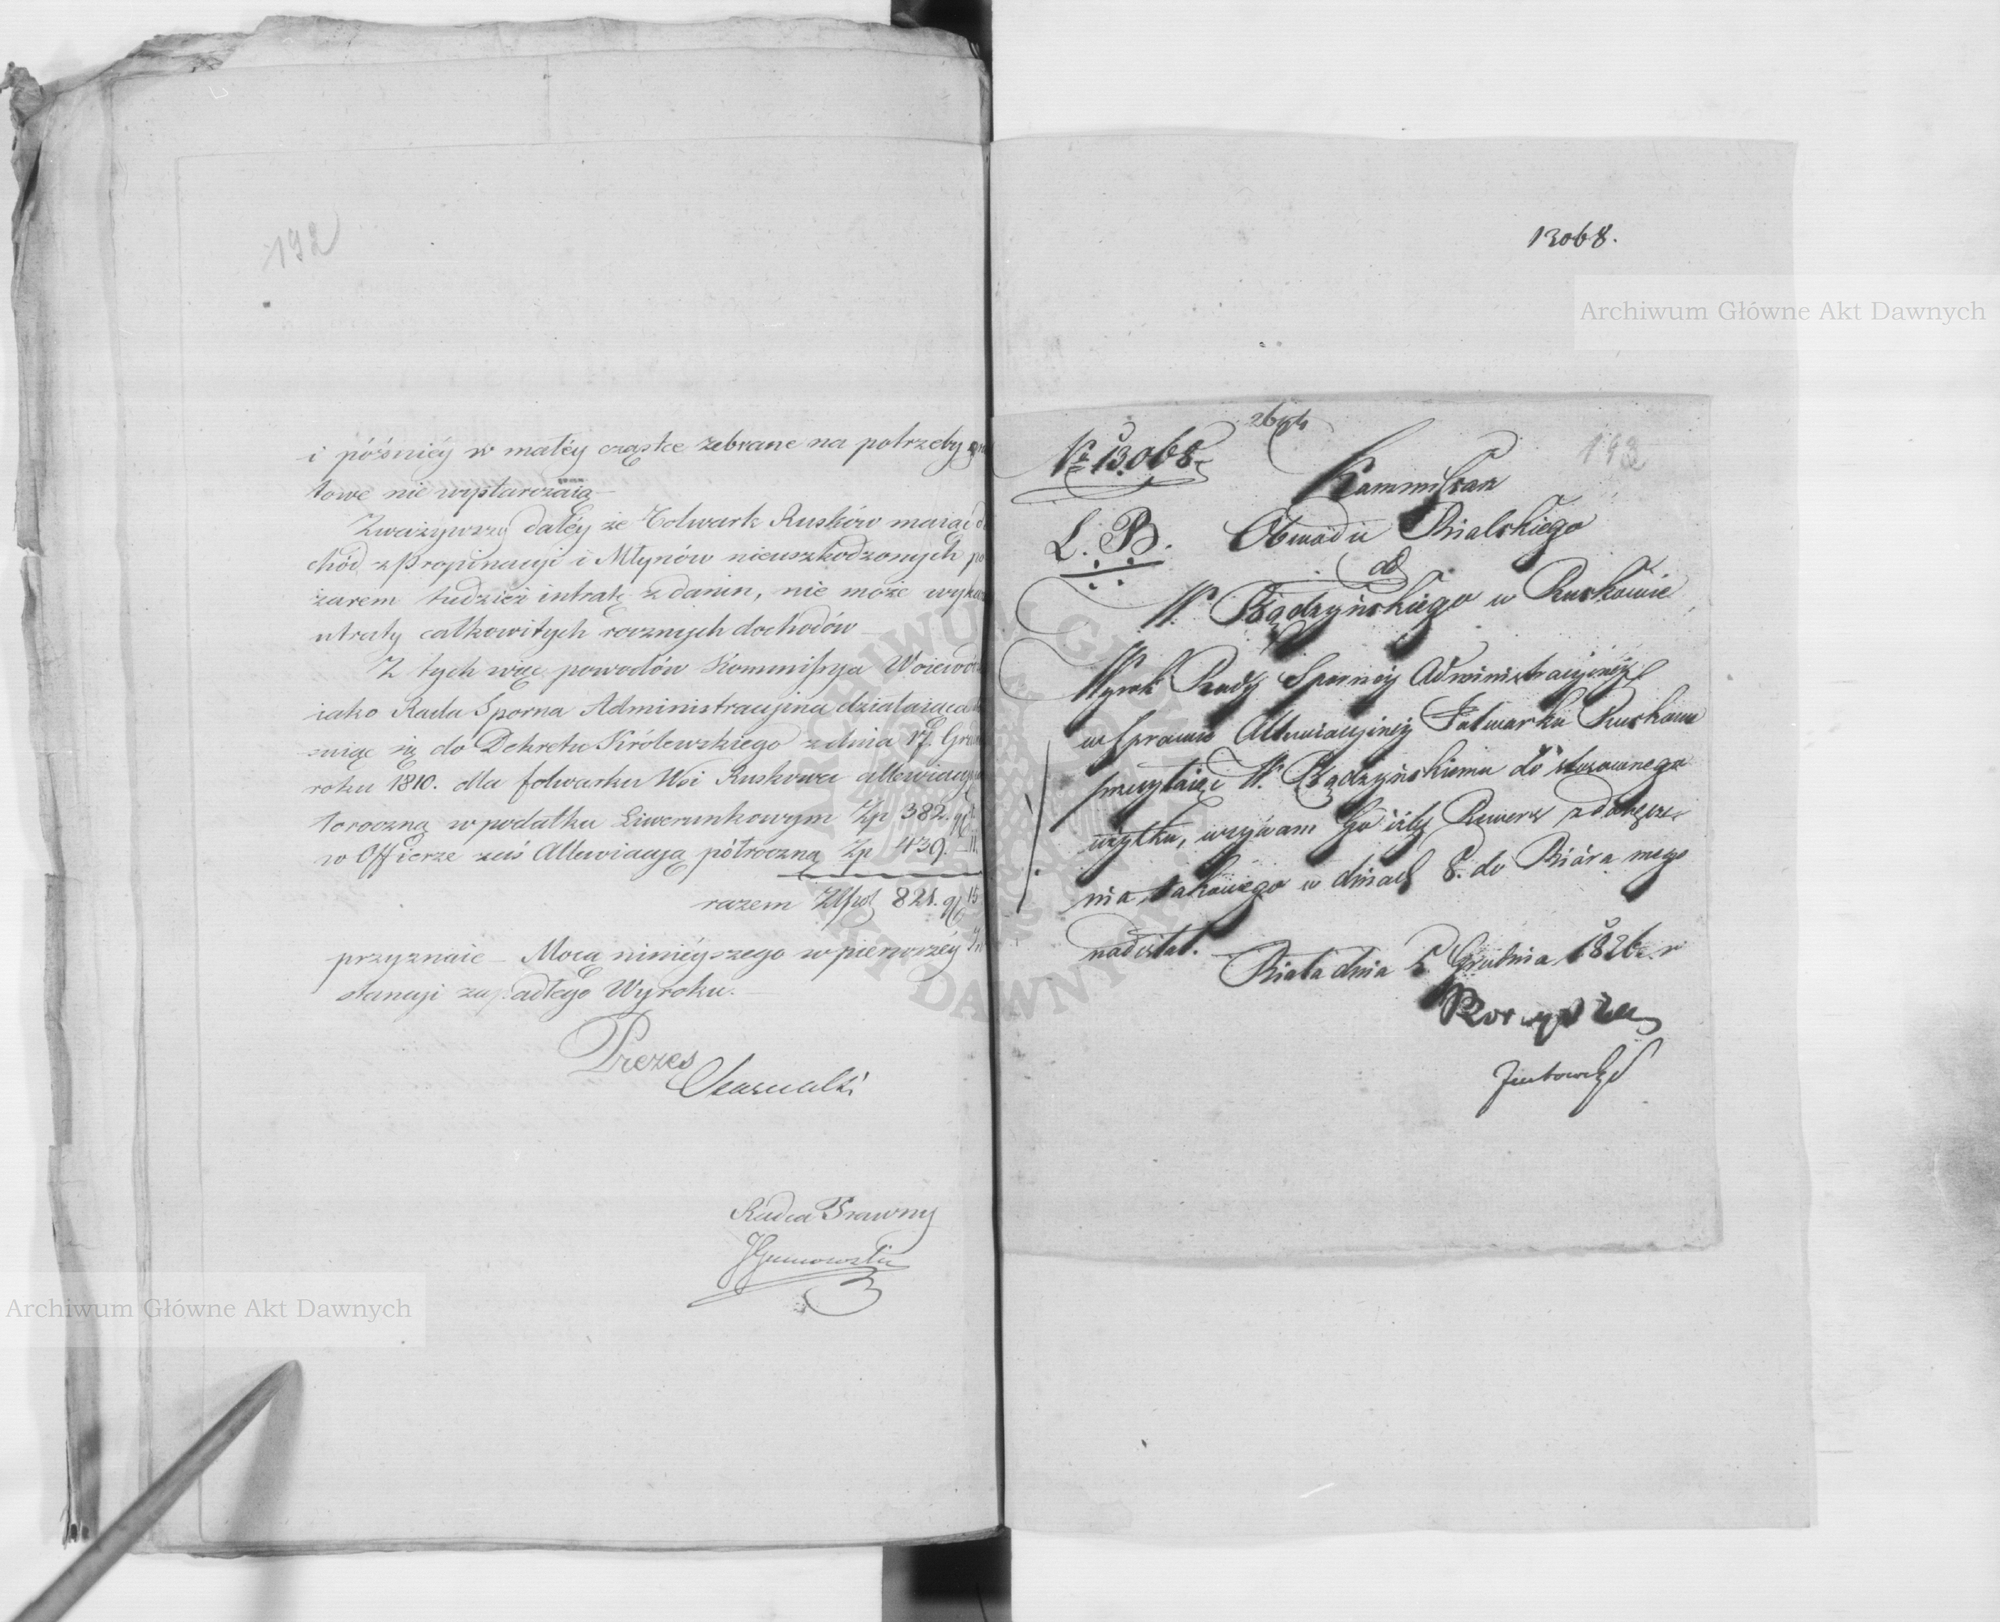 192
i późniéy w małéy cząstce zebrane na potrzeby
towe nie wystarczaią
Zważywszy daléy że Folwark Rusków maiąc
chód z Propinacyi i Młynów nieuszkodzonych po
żarem tudzież intratę z danin, nie może wyka
utraty całkowitych rocznych dochodów
Z tych więc powodów Kommissya Woiewódz
iako Rada Sporna Administracyjna działaiąca
się do Dekretu Królewskiego z dnia 17. Gru
roku 1810. dla folwarku Wsi Ruskowa allewiacyą
toroczną w podatku Liwerunkowym Zp 382. gr
w Offierze zaś Allewiacyą półroczną Zp 439. 11.
razem Złpol 821. gr 15
przyznaie Mocą ninieyszego w pierwszéy In
stancyi zapadłego Wyroku.
Prezes
Radca Prawny
13068.
Archiwum Główne Akt Dawnych
193
Nr 13.068.
Kommissarz
L. B. Obwodu Bialskiego
do
W. Bądzyńskiego w Ruskowie
Wyrok Rady Spornéy Administracyjnéy
w sprawie Allewiacyjnéy Folwarku Ruskowa
przesyłaiąc W. Bądzyńskiemu do stosownego
użytku, wzywam Go iżby Rewers z doręcze
nia takowego w dniach 8. do Biura mego
nadesłał.
Biała dnia 5 Grudnia 1826. r
Archiwum Główne Akt Dawnych